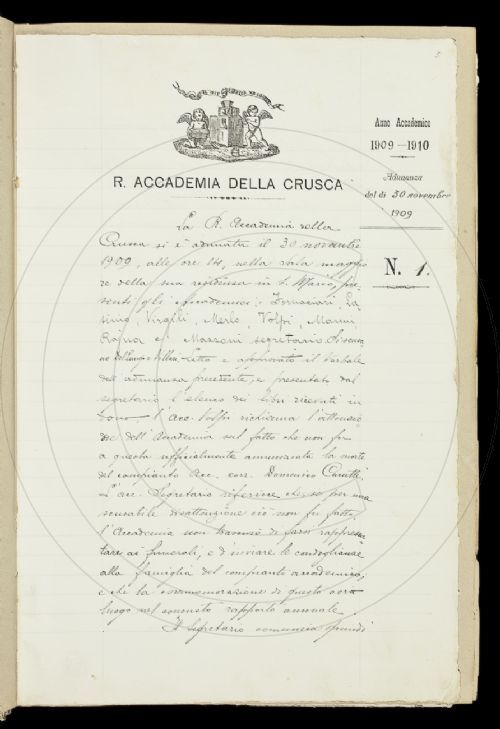 5
Anno Accademico
1909-1910
Adunanza
del dì 30 novembre
1909
N. 1.
R. ACCADEMIA DELLA CRUSCA
La R. Accademia della
Crusca si è adunata il 30 novembre
1909, alle ore 14, nella sala maggio
re della sua residenza in S. Marco, pre
senti gli Accademici: Fornaciari, La
sinio, Virgili, Merlo, Volpi, Marini,
Rajna e Mazzoni segretario.
Letto e approvato il Verbale
dell'adunanza precedente, e presentato dal
segretario l'elenco dei libri ricevuti in
dono, l'acc. Volpi richiama l'attenzio
ne dell'Accademia sul fatto che non fu
a questa ufficialmente annunziata la morte
del compianto Acc. corr. Domenico Carutti.
L'acc. Segretario riferisce che, se per una
scusabile disattenzione ciò non fu fatto,
l'Accademia non trascurò di farsi rappresen
tare ai funerali, e d'inviare le condoglianze
alla famiglia del compianto accademico;
e che la commemorazione di questo avrà
luogo nel consueto rapporto annuale.
Il Segretario comincia quindi